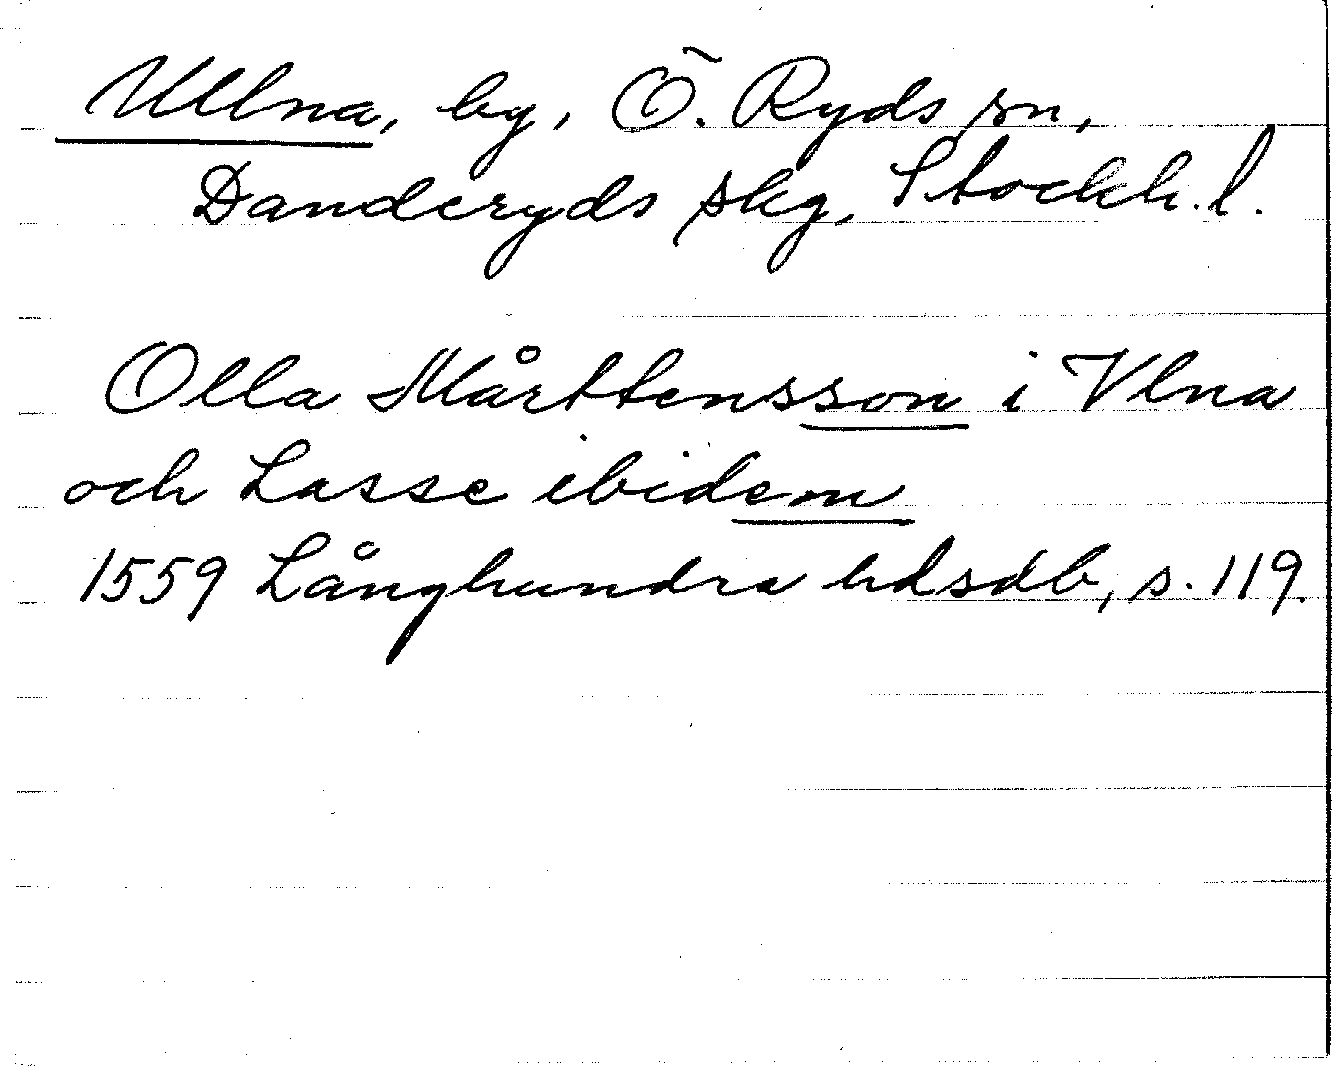 Ullna, by, Ö. Ryds sn,
Danderyds skg, Stockh. l.
Olla Mårttensson i Vlna
och Lasse ibidem
1559 Långhundra hdsdb, s. 119.